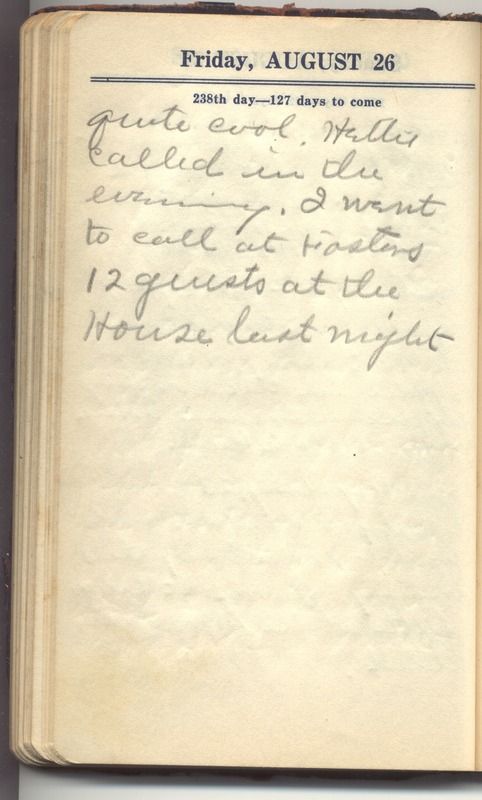 Friday, AUGUST 26
238th day—127 days to come
quite cool. Hattie
called in the
evening. I went
to call at Fosters
12 guests at the
House last night